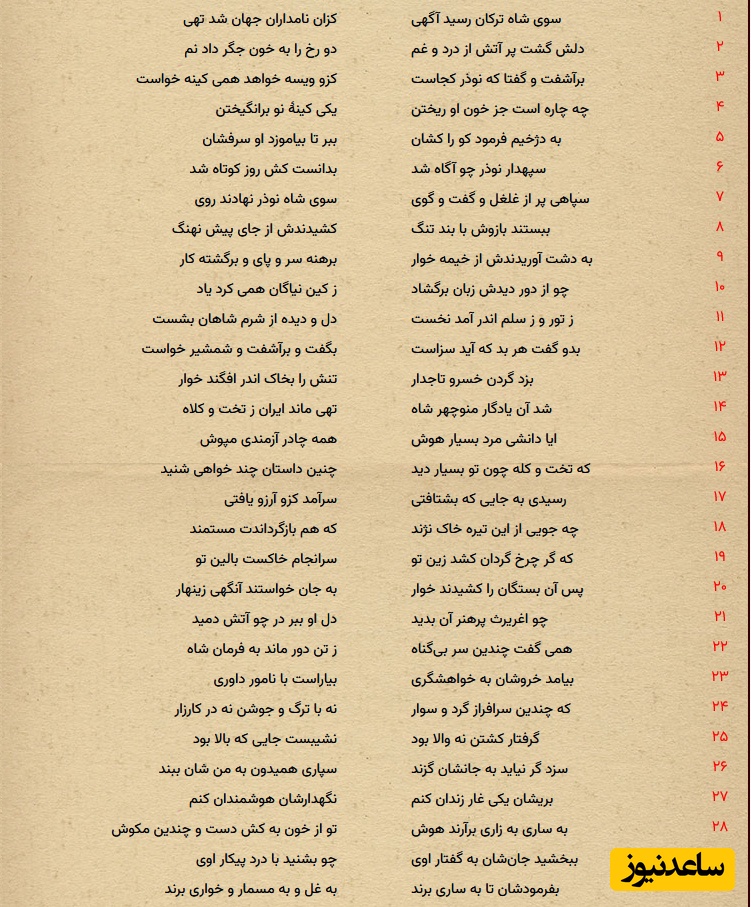 ۱ سوی شاه ترکان رسید آگهی کزان نامداران جهان شد تهی
۲ دلش گشت پر آتش از درد و غم دو رخ را به خون جگر داد نم
۳ برآشفت و گفتا که نوذر کجاست کزو ویسه خواهد همی کینه خواست
۴ چه چاره است جز خون او ریختن یکی کینهٔ نو برانگیختن
۵ به دژخیم فرمود کو را کشان ببر تا بیاموزد او سرفشان
۶ سپهدار نوذر چو آگاه شد بدانست کش روز کوتاه شد
۷ سپاهی پر از غلغل و گفت و گوی سوی شاه نوذر نهادند روی
۸ ببستند بازوش با بند تنگ کشیدندش از جای پیش نهنگ
۹ به دشت آوریدندش از خیمه خوار برهنه سر و پای و برگشته کار
۱۰ چو از دور دیدش زبان برگشاد ز کین نیاگان همی کرد یاد
۱۱ ز تور و ز سلم اندر آمد نخست دل و دیده از شرم شاهان بشست
۱۲ بدو گفت هر بد که آید سزاست بگفت و برآشفت و شمشیر خواست
۱۳ بزد گردن خسرو تاجدار تنش را بخاک اندر افگند خوار
۱۴ شد آن یادگار منوچهر شاه تهی ماند ایران ز تخت و کلاه
۱۵ ایا دانشی مرد بسیار هوش همه چادر آزمندی مپوش
۱۶ که تخت و کله چون تو بسیار دید چنین داستان چند خواهی شنید
۱۷ رسیدی به جایی که بشتافتی سرآمد کزو آرزو یافتی
۱۸ چه جویی از این تیره خاک نژند که هم بازگرداندت مستمند
۱۹ که گر چرخ گردان کشد زین تو سرانجام خاکست بالین تو
۲۰ پس آن بستگان را کشیدند خوار به جان خواستند آنگهی زینهار
۲۱ چو اغریرث پرهنر آن بدید دل او ببر در چو آتش دمید
۲۲ همی گفت چندین سر بی‌گناه ز تن دور ماند به فرمان شاه
۲۳ بیامد خروشان به خواهشگری بیاراست با نامور داوری
۲۴ که چندین سرافراز گرد و سوار نه با ترگ و جوشن نه در کارزار
۲۵ گرفتار کشتن نه والا بود نشیبست جایی که بالا بود
۲۶ سزد گر نیاید به جانشان گزند سپاری همیدون به من شان ببند
۲۷ بریشان یکی غار زندان کنم نگهدارشان هوشمندان کنم
۲۸ به ساری به زاری برآرند هوش تو از خون به کش دست و چندین مکوش
ببخشید جان‌شان به گفتار اوی چو بشنید با درد پیکار اوی
بفرمودشان تا به ساری برند به غل و به مسمار و خواری برند
ساعدنیوز